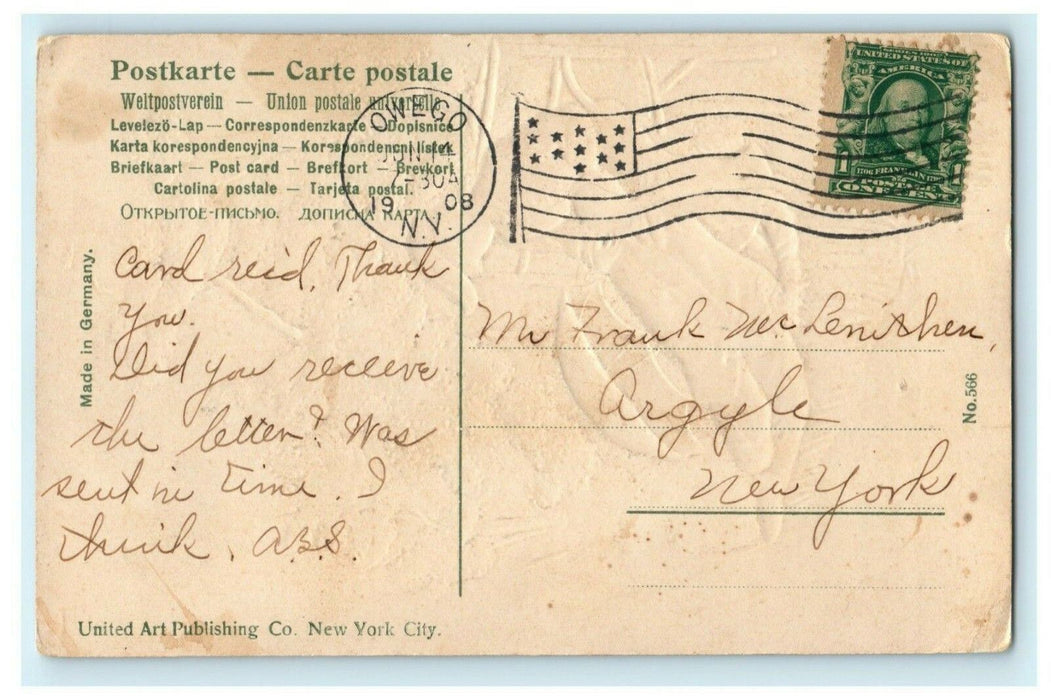 Postkarte — Carte postale
Weltpostverein — Union postale universelle
Levelezö-Lap — Correspondenzkarte — Dopisnice
Karta korespondencyjna — Korespondencni listek
Briefkaart — Post card — Brefkort — Brevkort
Cartolina postale — Tarjeta postal.
Открытое-письмо. дописна карта
OWEGO
JUN 14
7-30A
19 08
N.Y.
UNITED STATES OF
AMERICA
FRANKLIN
POSTAGE
ONE CENT
Card rec'd. Thank
you.
Did you receive
the letter? Was
sent in time. I
think. ABS.
Made in Germany.
Mr Frank Mc Lenithen,
Argyle
New York
No. 566
United Art Publishing Co. New York City.